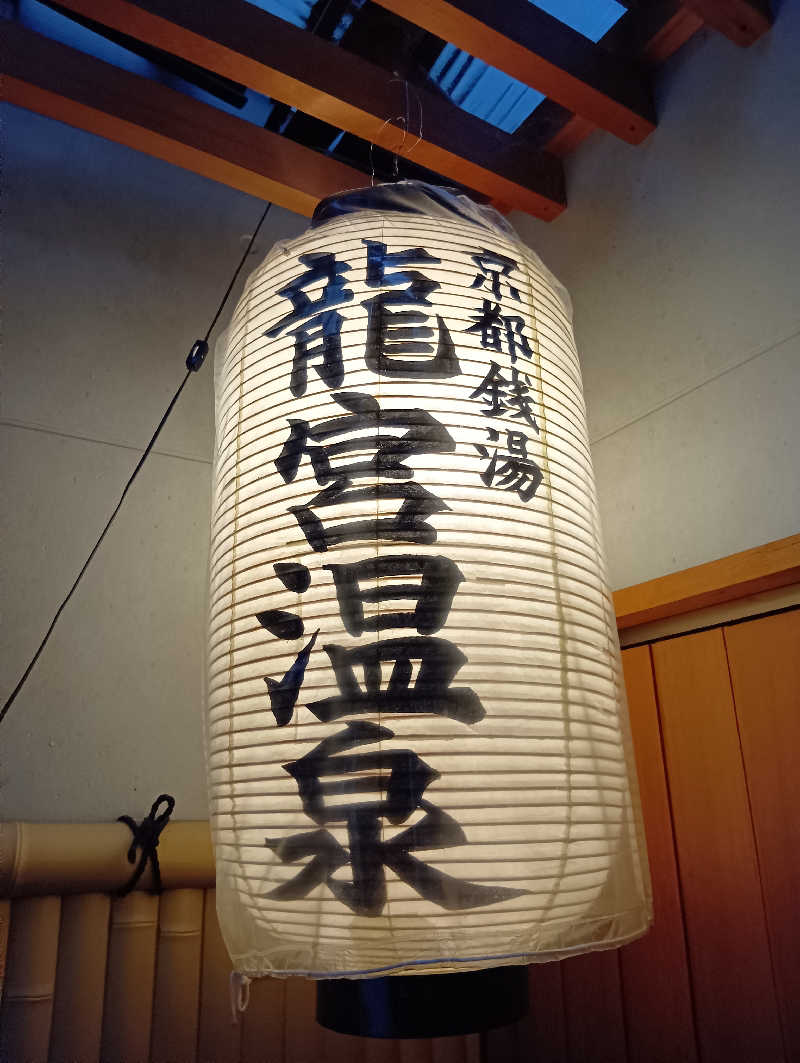 京都銭湯
龍宮温泉